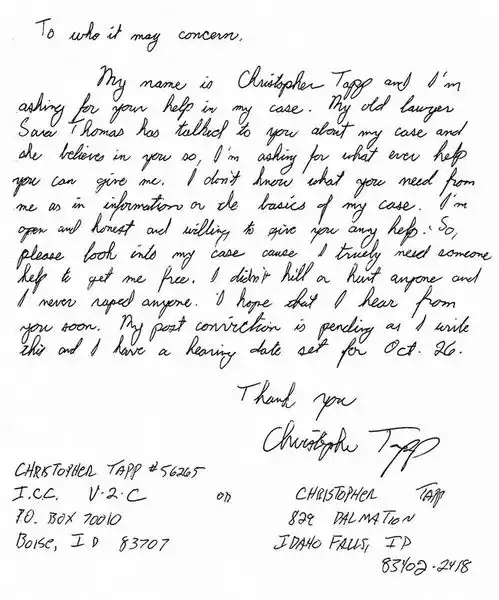 To who it may concern,
My name is Christopher Tapp and I'm
asking for your help in my case. My old lawyer
Sara Thomas has talked to you about my case and
she believes in you so, I'm asking for what ever help
you can give me. I don't know what you need from
me as in information or the basics of my case. I'm
open and honest and willing to give you any help. So,
please look into my case cause I truely need someone
help to get me free. I didn't kill or hurt anyone and
I never raped anyone. I hope that I hear from
you soon. My post conviction is pending as I write
this and I have a hearing date set for Oct. 26.
Thank you
Christopher Tapp
CHRISTOPHER TAPP #56265
I.C.C. V-2-C
P.O. BOX 70010
BOISE, ID 83707
or
CHRISTOPHER TAPP
829 DALMATION
IDAHO FALLS, ID
83402-2418